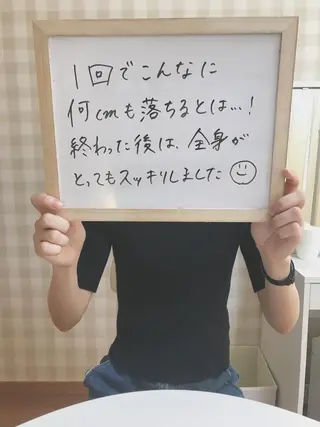 1回でこんなに
何cmも落ちるとは…!
終わった後は、全身が
とってもスッキリしました